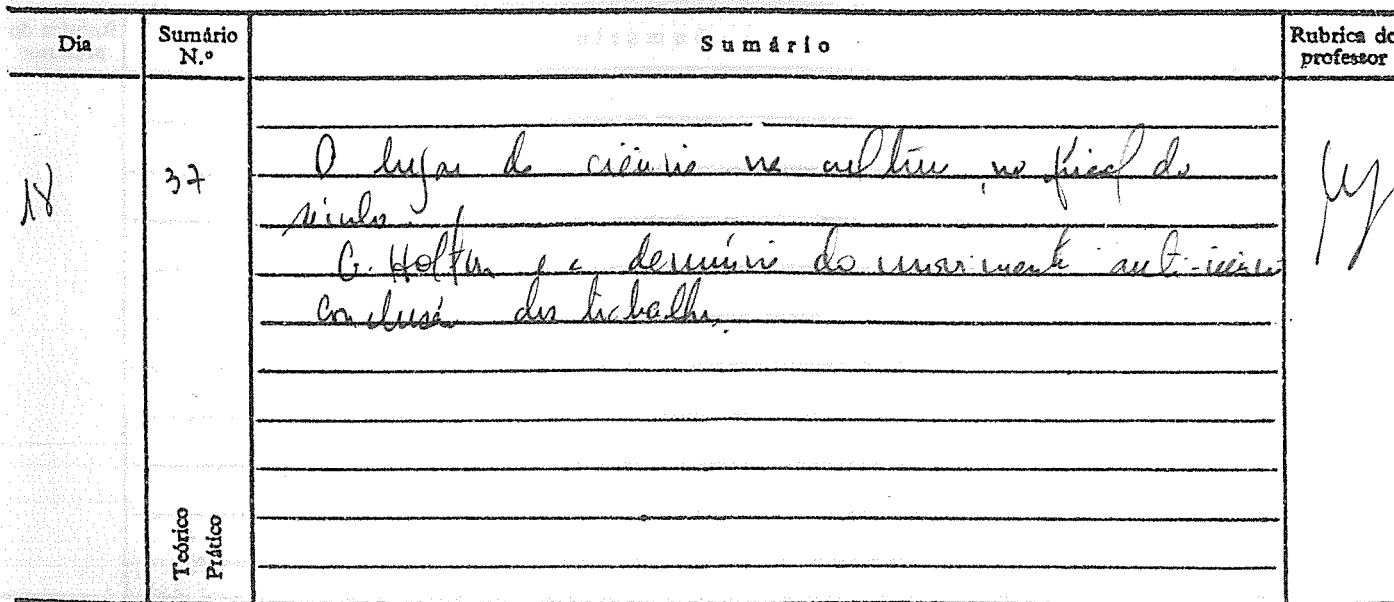 Dia
Sumário N.º
Sumário
Rubrica do professor
18
37
O lugar da ciência na cultura no final do
século.
G. Holton e a denúncia do movimento anti-ciência
Conclusão dos trabalhos.
Teórico
Prático